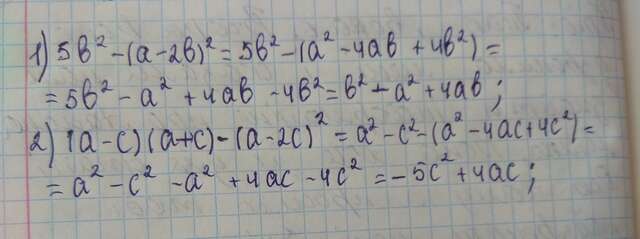 1) 5b² - (a - 2b)² = 5b² - (a² - 4ab + 4b²) =
= 5b² - a² + 4ab - 4b² = b² - a² + 4ab;
2) (a - c)(a + c) - (a - 2c)² = a² - c² - (a² - 4ac + 4c²) =
= a² - c² - a² + 4ac - 4c² = -5c² + 4ac;